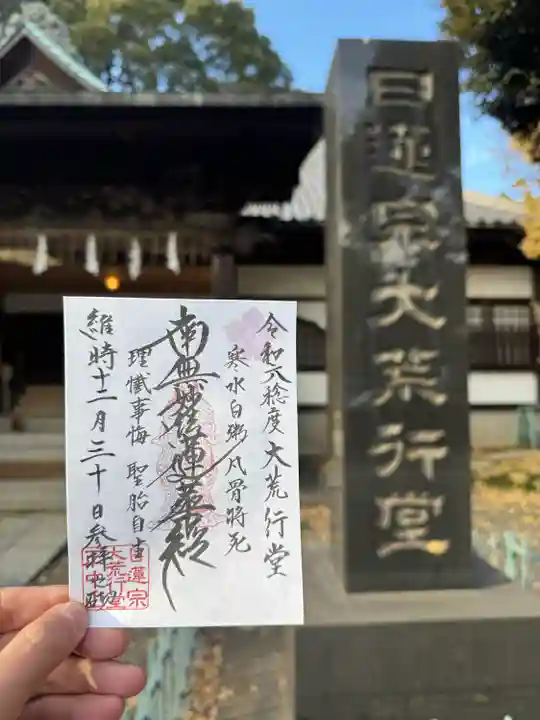 日蓮宗大荒行堂
令和六稔度大荒行堂
寒水白粥凡骨将死
南無妙法蓮華経
理懺事悔 聖胎自由
維時十二月三十日参拝之砌
日蓮宗
大荒行堂